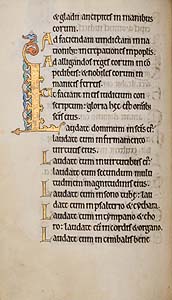 et gladii ancipites in manibus
eorum.
Ad faciendam vindictam in na
tionibus: increpationes in populis.
Ad alligandos reges eorum in com
pedibus: et nobiles eorum in
manicis ferreis.
Ut faciant in eis iudicium con
scriptum: gloria hec est omnibus
scis eius.
Laudate dominum in scis eius:
laudate eum in firmamento
virtutis eius.
Laudate eum in virtutibus eius:
laudate eum secundum multi
tudinem magnitudinis eius.
Laudate eum in sono tube: lau
date eum in psalterio et cythara.
Laudate eum in tympano et cho
ro: laudate eum in cordis et organo.
Laudate eum in cimbalis bene